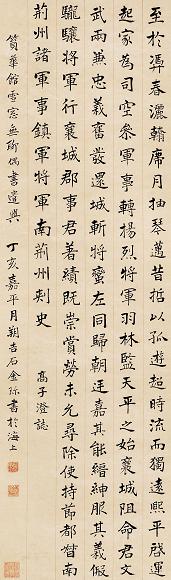 至於馮春灑翰席月抽琴邁昔哲以孤遊超時流而獨遠熙平啟運
起家為司空參軍事轉揚烈將軍羽林監天平之始襄城阻命君文
武兩兼忠義奮發還城斬將蠻左同歸朝廷嘉其能縉紳服其義假
驪驤將軍行襄城郡事君著績既崇賞勞未允尋除使持節都督南
荊州諸軍事鎮軍將軍南荊州刺史
高子澄誌
質華館雪窓無俚偶書遣興
丁亥嘉平月朔吉石金 書於海上